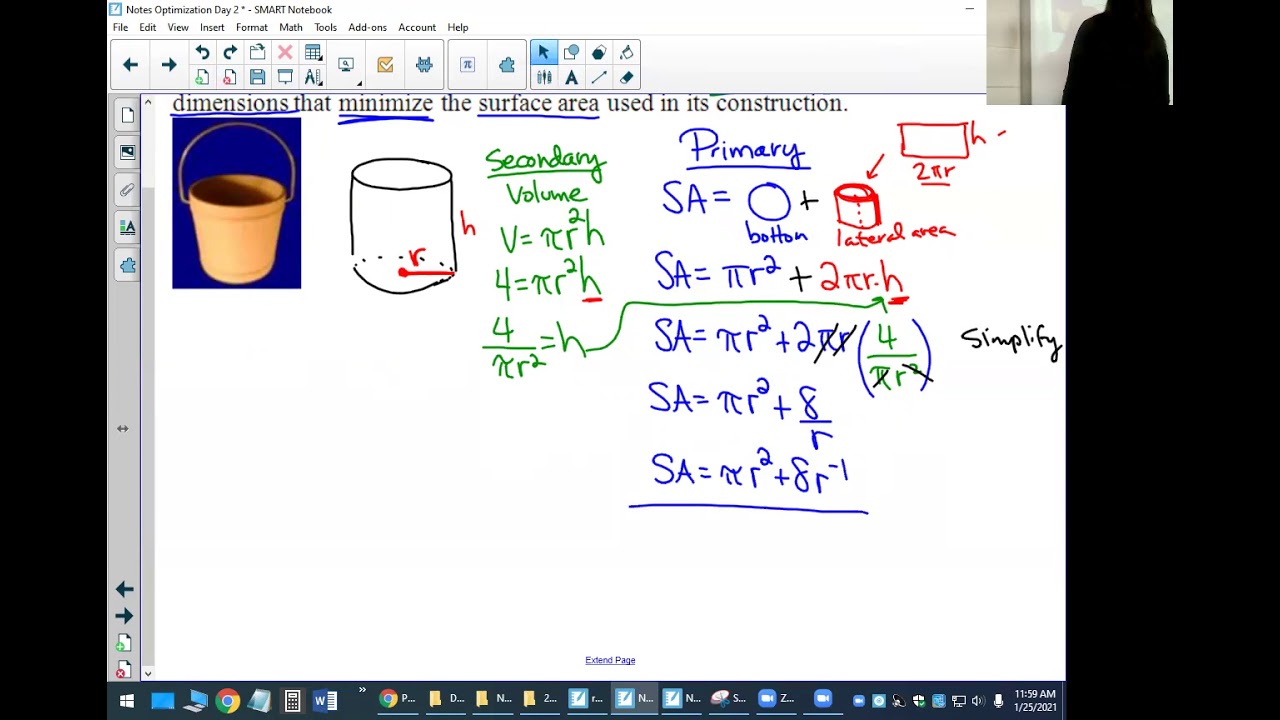 Notes Optimization Day 2 * - SMART Notebook
File Edit View Insert Format Math Tools Add-ons Account Help
dimensions that minimize the surface area used in its construction.
r
h
Secondary
Volume
V=πr²h
4=πr²h
4/πr²=h
Primary
SA= + 
botton
lateral area
h
2πr
SA=πr²+2πr·h
SA=πr²+2πr(4/πr²)
Simplify
SA=πr²+8/r
SA=πr²+8r⁻¹
Extend Page
P...
D...
N...
2...
r...
N...
N...
S...
Z...
11:59 AM
1/25/2021